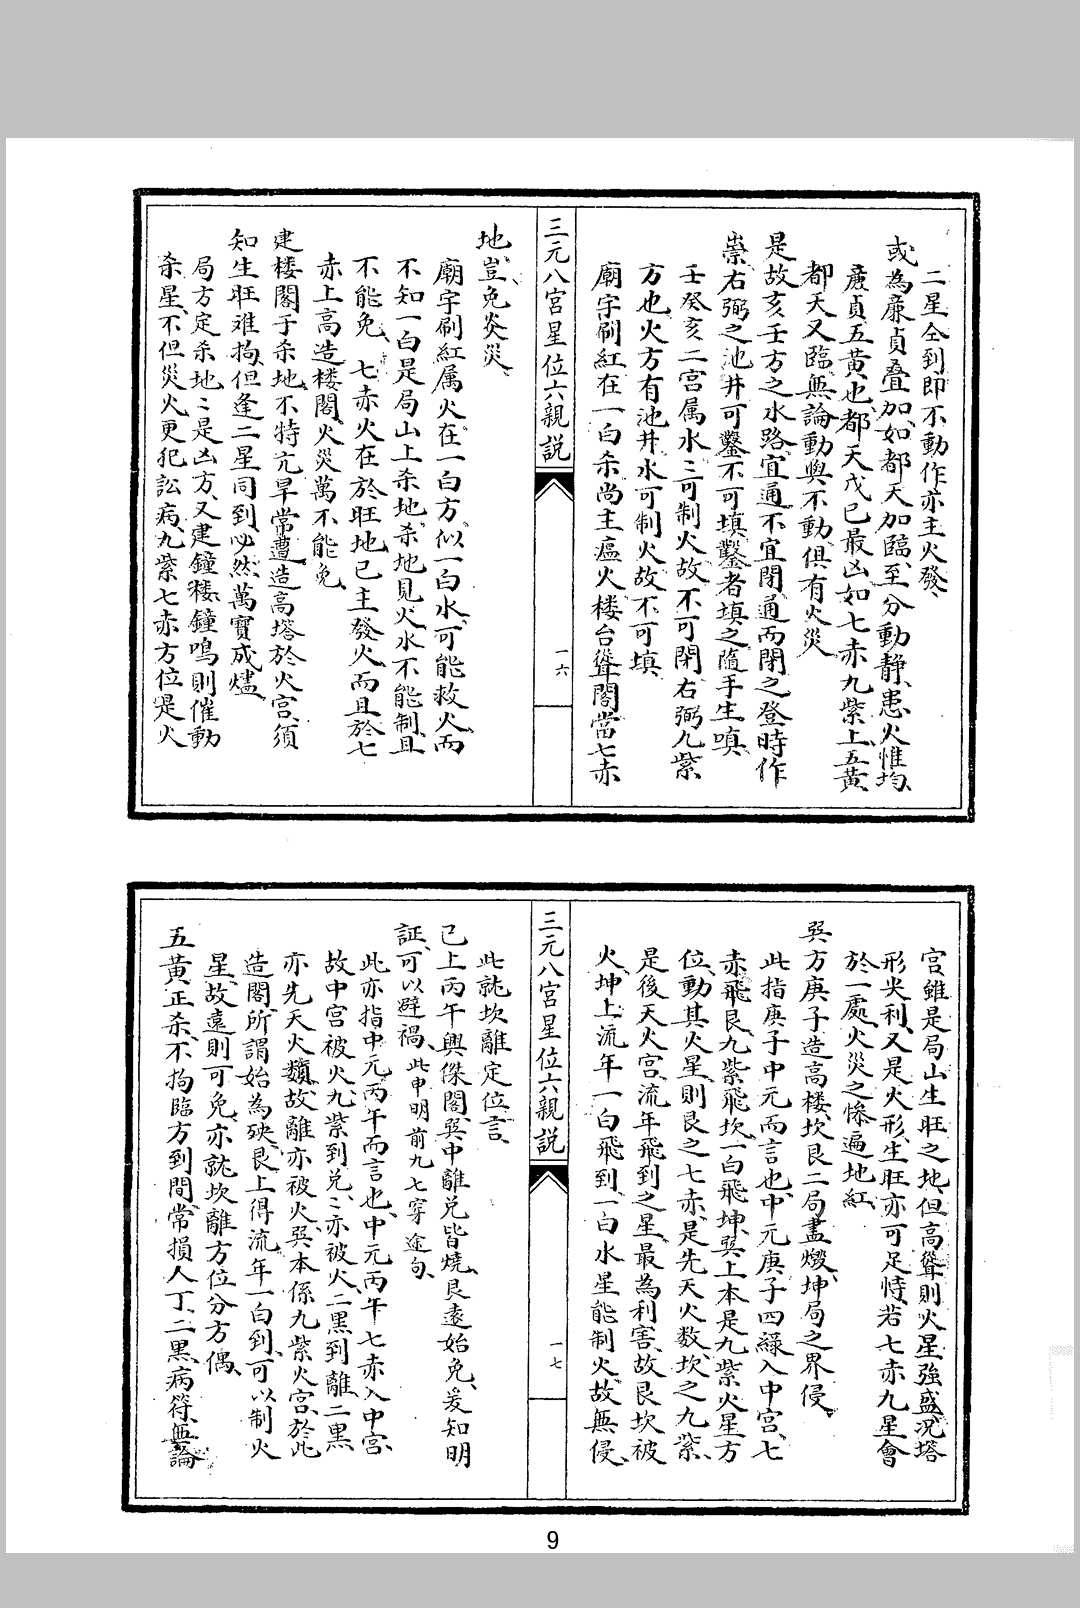 二星仝到即不動作亦主火發、
或為廉貞叠加、如都天加臨、至分動靜、患火惟均、
廉貞五黃也、都天戊已最凶如七赤九紫上五黃、
都天又臨、無論動與不動、俱有火災
是故亥壬方之水路、宜通不宜閉通而閉之登時作
祟、右弼之池井可鑿不可填鑿者填之隨手生嗔
壬癸亥二宮属水、二可制火故不可閉、右弼九紫
方也火方有池井水可制火故不可填
廟宇刷紅在一白杀尚主瘟火楼台聳閣當七赤
三元八宮星位六親説
一六
地、豈免炎災、
廟宇刷紅属火在一白方、似一白水、可能救火、而
不知一白是局山上杀地、杀地見火、水不能制、且
不能免、七赤火在於旺地已主發火而且於七
赤上高造楼閣、火災萬不能免、
建楼閣于杀地、不特亢旱常遭造高塔於火宫、須
知生旺难拘、但逢二星同到、必然萬寶成燼、
局方定杀地、二是凶方、又建鐘楼、鐘鳴則催動
杀星、不但災火更犯訟病、九紫七赤方位是火
宮雖是局山生旺之地、但高聳則火星強盛、况塔
形尖利、又是火形、生旺亦可足恃若七赤九星會
於一處、火災之慘遍地紅、
巽方庚子造高楼、坎艮二局盡燬、坤局之界侵、
此指庚子中元而言也、中元庚子四綠入中宫、七
赤飛艮、九紫飛坎、一白飛坤、巽上本是九紫火星方
位、動其火星則艮之七赤、是先天火数、坎之九紫、
是後天火宫、流年飛到之星、最為利害、故艮坎被
火、坤上流年一白飛到、一白水星能制火、故無侵、
三元八宮星位六親説
一七
此就坎離定位言、
已上丙午與傑閣、巽中離兑皆燒、艮遠始免、爰知明
証、可以避禍、此申明前九七穿途句、
此亦指中元丙午而言也、中元丙午七赤入中宫、
故中宫被火、九紫到兑、二亦被火、二黑到離、二黑
亦先天火類、故離亦被火、巽本係九紫火宫、於此
造閣、所謂始為殃、艮上得流年一白到、可以制火
星、故遠則可免、亦就坎離方位分方偶、
五黃正杀、不拘臨方到間、常損人丁、二黑病符、無論
9